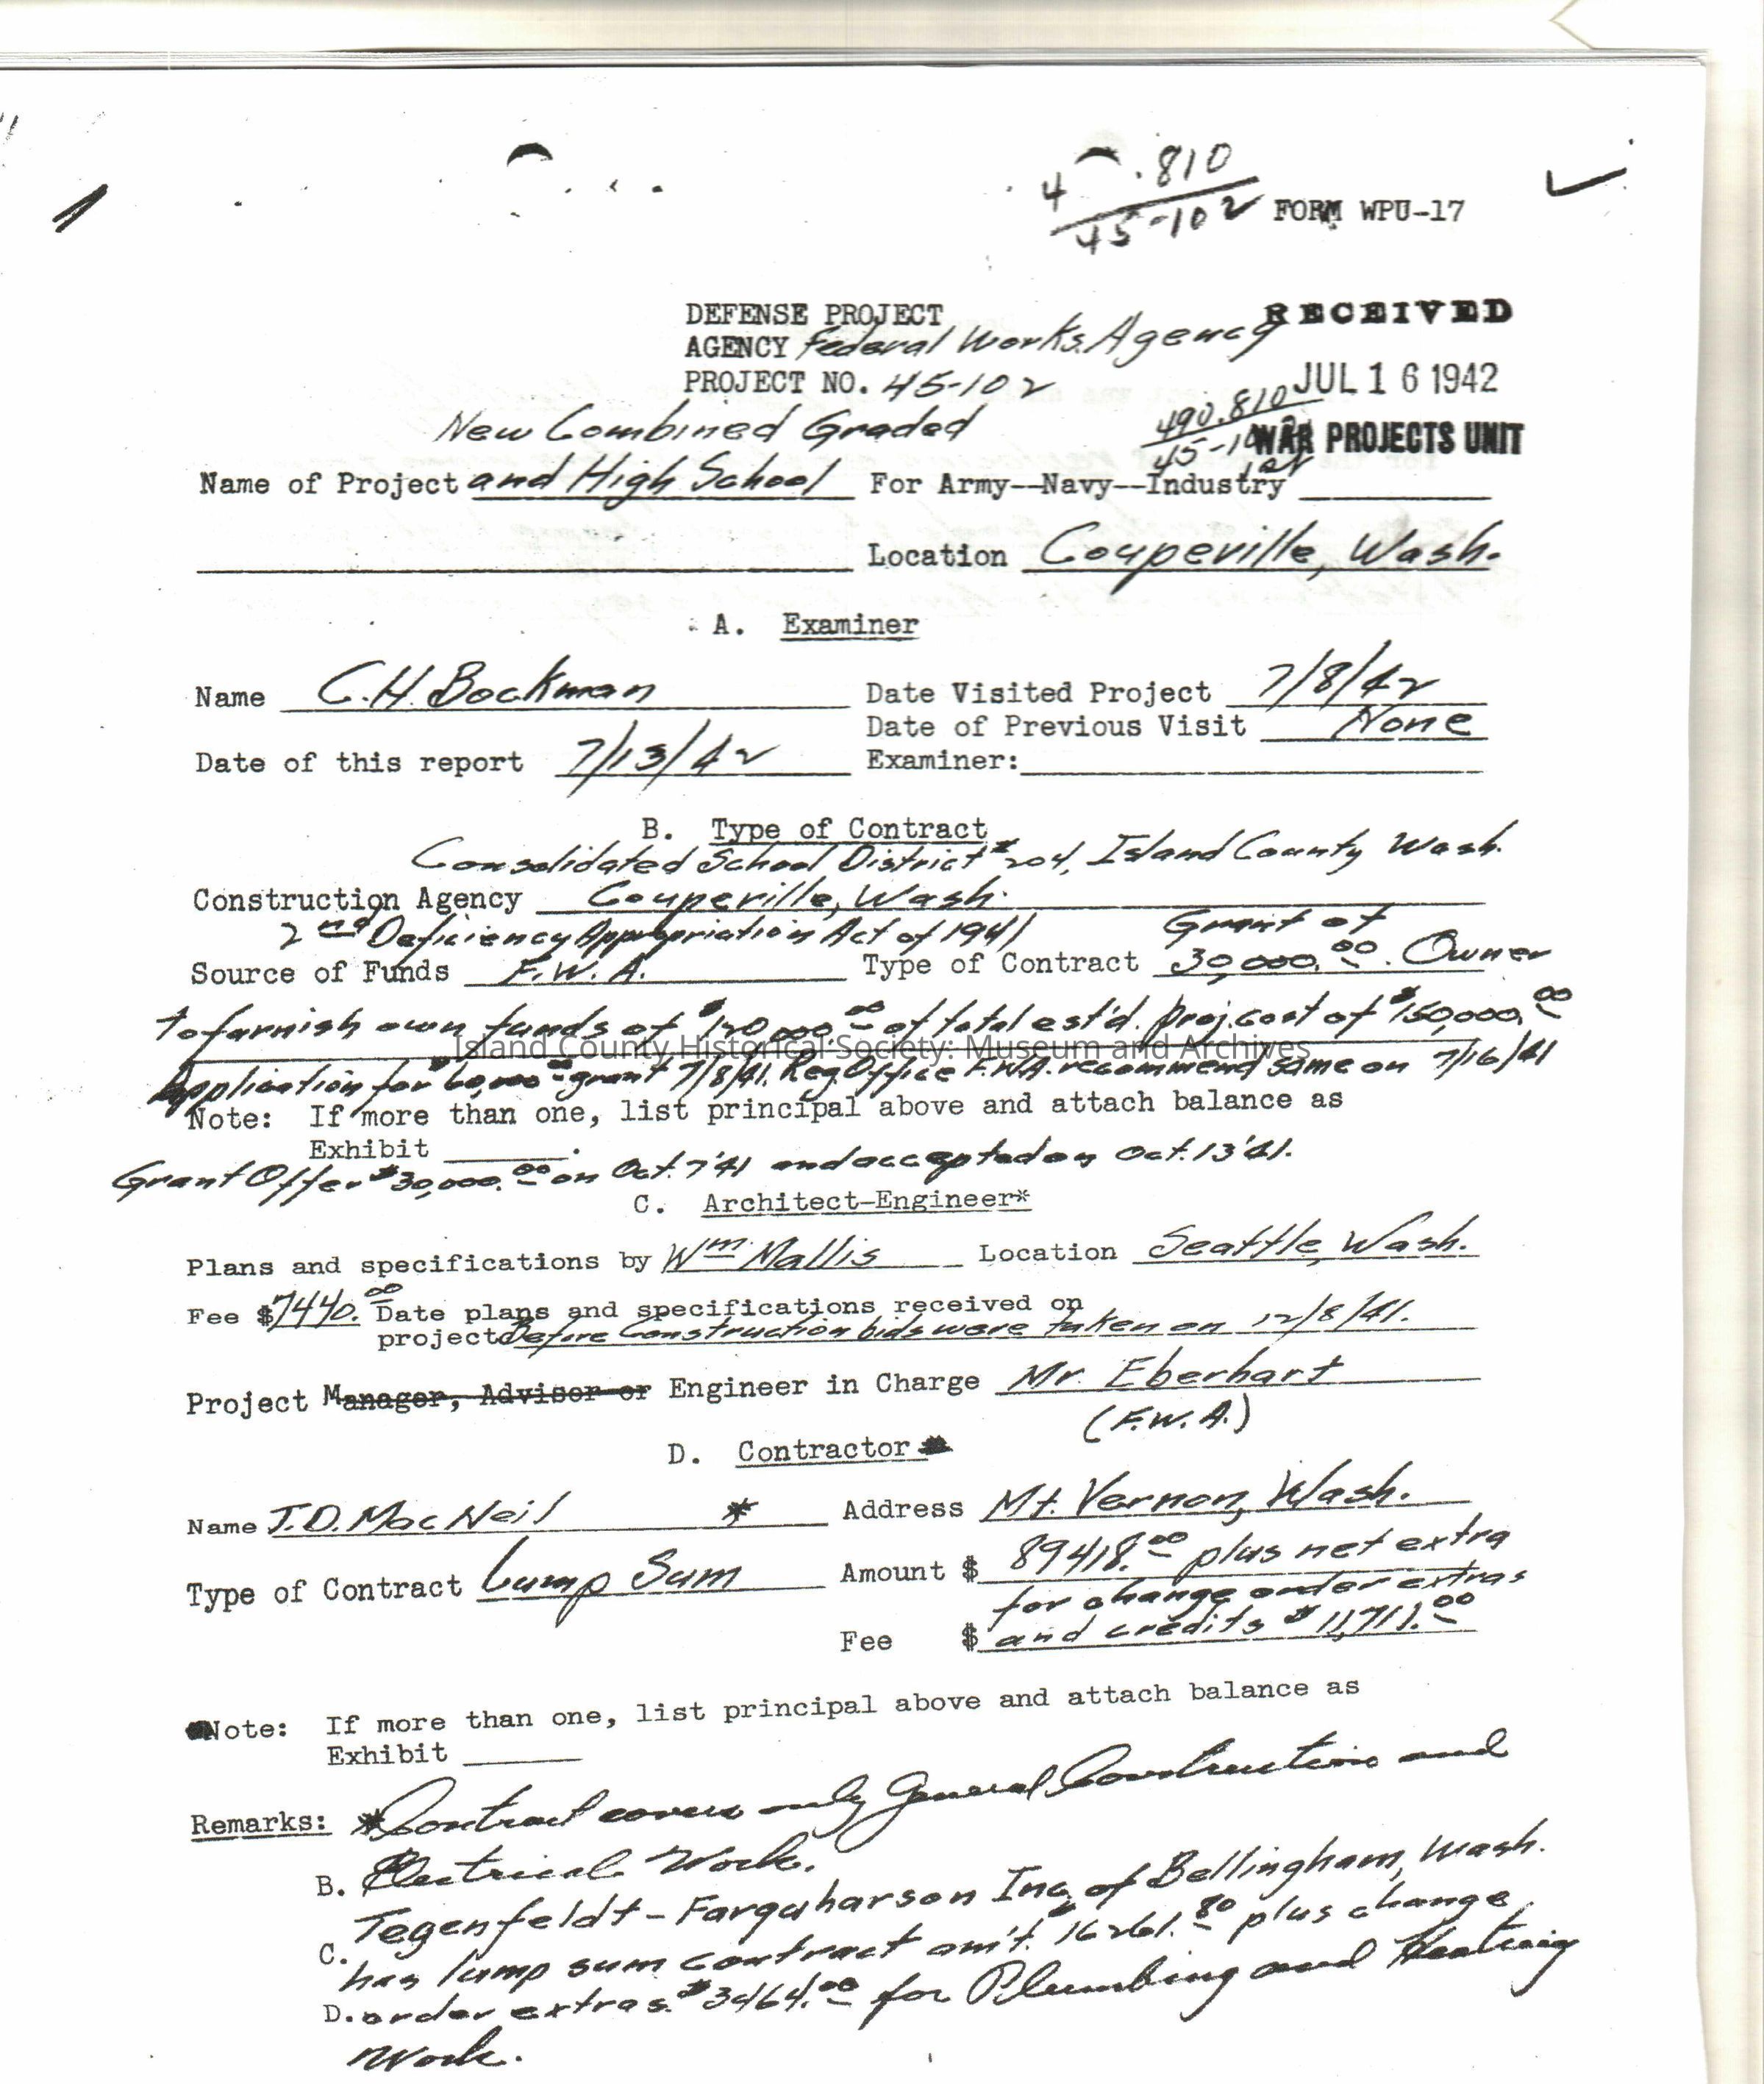 4 .810
45-102 FORM WPU-17
DEFENSE PROJECT RECEIVED
AGENCY Federal Works Agency
PROJECT NO. 45-102 JUL 16 1942
New Combined Graded 490.810
45-102 WAR PROJECTS UNIT
Name of Project and High School For Army--Navy--Industry
Location Coupeville, Wash.
A. Examiner
Name C.H. Bockman Date Visited Project 7/8/42
Date of Previous Visit None
Date of this report 7/13/42 Examiner:
B. Type of Contract
Consolidated School District #204, Island County Wash.
Construction Agency Coupeville, Wash.
2nd Deficiency Appropriation Act of 1941 Grant of
Source of Funds F.W.A. Type of Contract 30,000.00. Owner
to furnish own funds of $120,000.00 of total est'd. proj. cost of $150,000.00
Island County Historical Society: Museum and Archives
Application for $60,000.00 grant 7/8/41. Reg. Office F.W.A. recommend same on 7/16/41
Note: If more than one, list principal above and attach balance as
Exhibit ______.
Grant Offer $30,000.00 on Oct. 7 '41 and accepted on Oct. 13 '41.
C. Architect-Engineer*
Plans and specifications by Wm. Mallis Location Seattle, Wash.
Fee $7440.00 Date plans and specifications received on
project Before Construction bids were taken on 12/8/41.
Project Manager, Advisor or Engineer in Charge Mr. Eberhart
(F.W.A.)
D. Contractor
Name J.D. MacNeil * Address Mt. Vernon, Wash.
Type of Contract Lump Sum Amount $ 89418.00 plus net extra
for change order extras
Fee $ and credits $11,711.00
Note: If more than one, list principal above and attach balance as
Exhibit ______
Remarks: *Contract covers only General Construction and
B. Electrical Work.
Tegenfeldt-Farquharson Inc. of Bellingham, Wash.
C. has lump sum contract am't. $16261.80 plus change
D. order extras $3464.00 for Plumbing and Heating
Work.